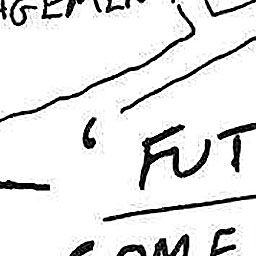 AGEMEN
6
FUT
COME